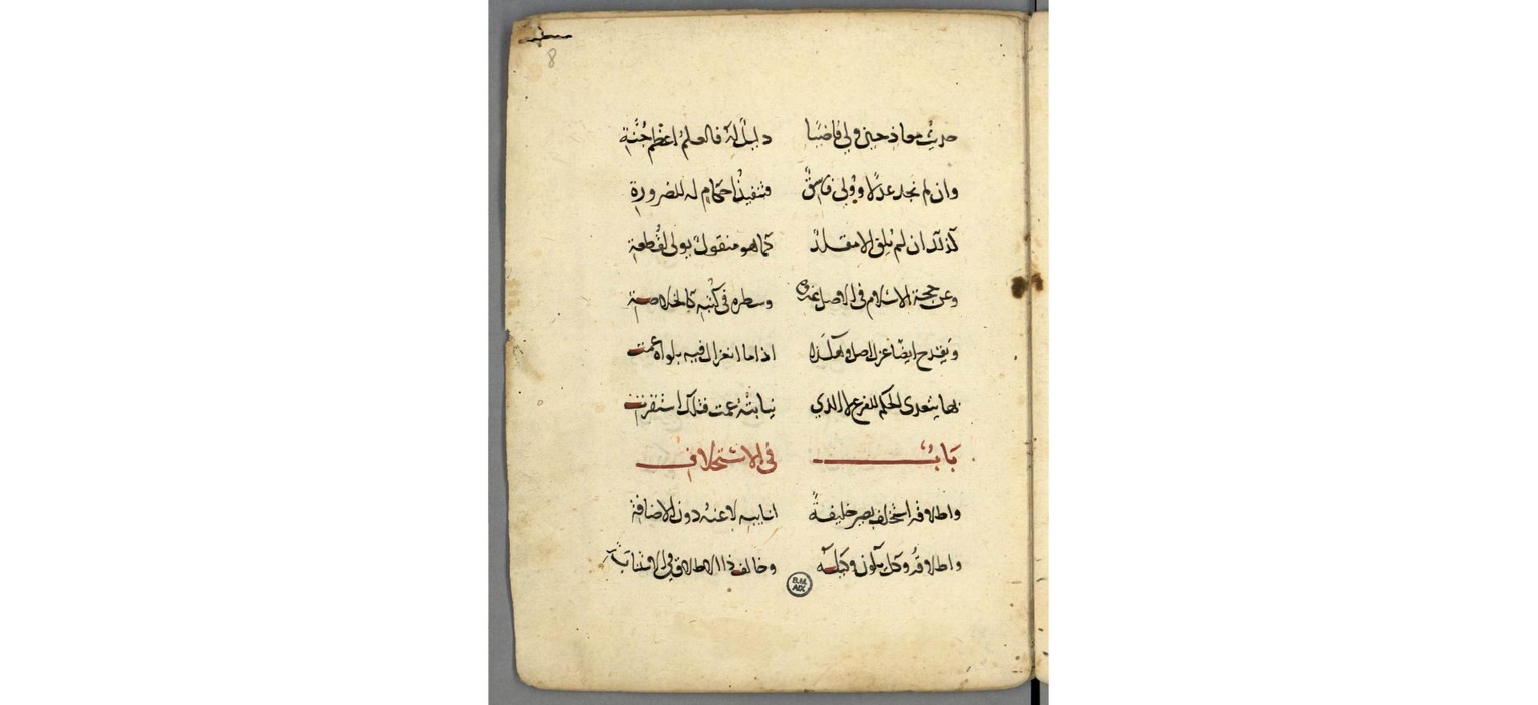 8
حديث معاذ حين ولي قاضيا دليل له فالعلم اعظم جنة
وان لم نجد عدلا وولي فاسق فتنفيذ احكام له للضرورة
كذلك ان لم نلق الا مقلد كما هو منقول يولى لقطعة
وعن حجة الاسلام في الاصل وسطره في كتبه كالخلاصة
ويقدح ايضا عزل اصل وهكذا اذا ما انعزال فيه بلواه عمت
بها يتعدى الحكم للفرع الذي نيابته عمت فتلك استقرت
باب في الاستخلاف
واطلاقه استخلف يصير خليفة انايبه لا عنه دون الاضافة
واطلاقه وكل يكون وكيله وخالف ذا الاطلاق في
B.M. AIX